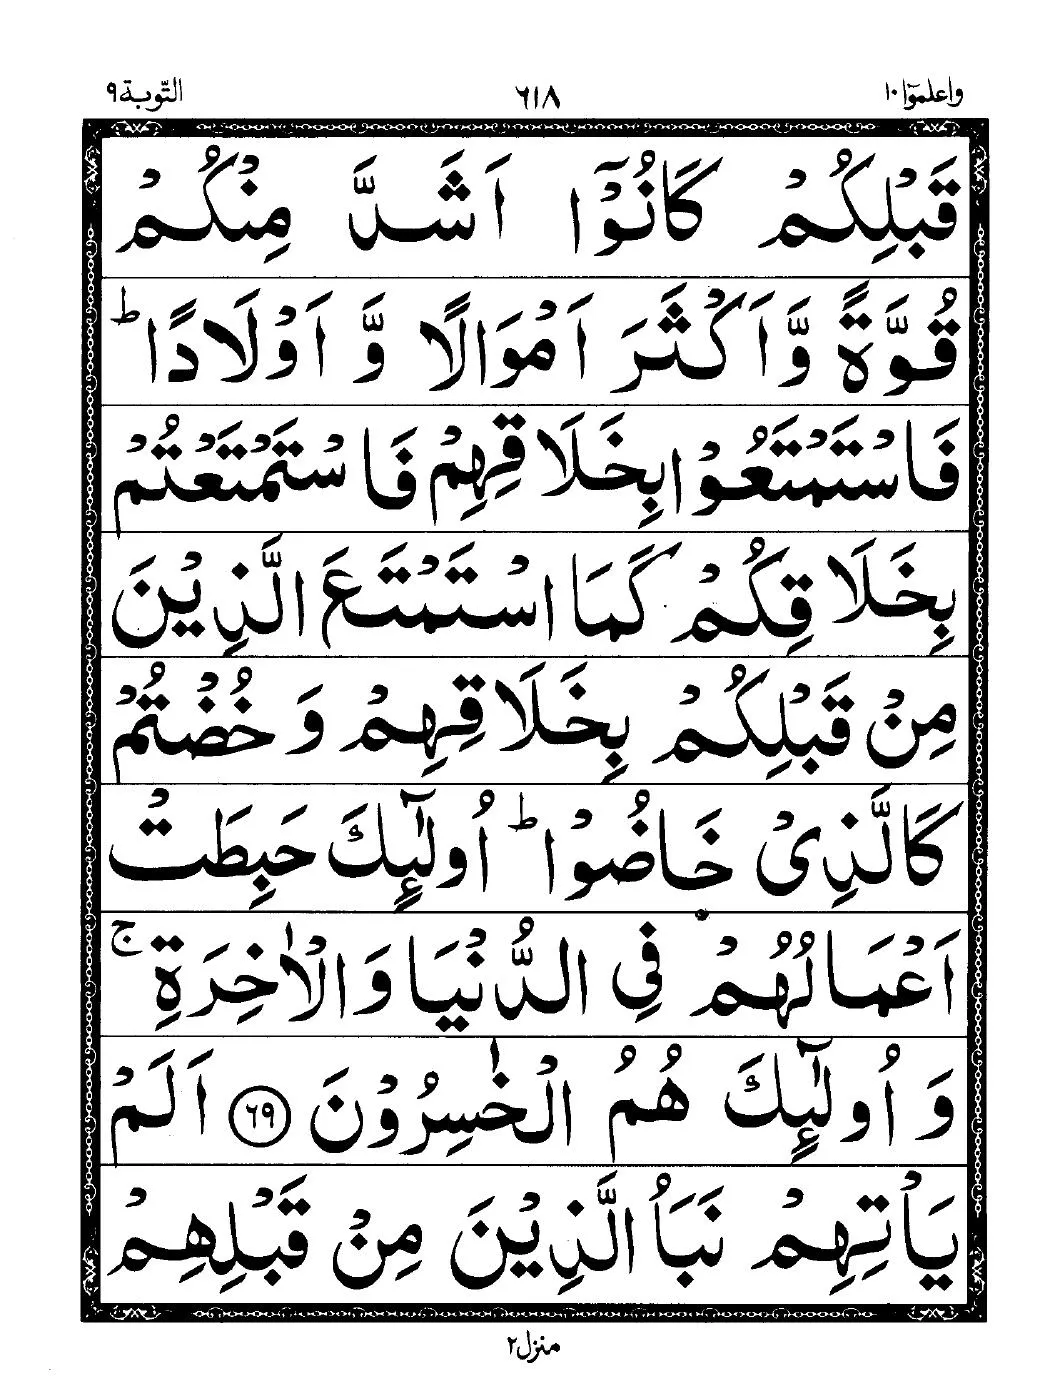 واعلموٓا ١٠ ٦١٨ التّوبة ٩
قَبْلِكُمْ كَانُوْٓا اَشَدَّ مِنْكُمْ
قُوَّةً وَّاَكْثَرَ اَمْوَالًا وَّ اَوْلَادًا ؕ
فَاسْتَمْتَعُوْا بِخَلَاقِهِمْ فَاسْتَمْتَعْتُمْ
بِخَلَاقِكُمْ كَمَا اسْتَمْتَعَ الَّذِيْنَ
مِنْ قَبْلِكُمْ بِخَلَاقِهِمْ وَ خُضْتُمْ
كَالَّذِيْ خَاضُوْا ؕ اُولٰٓئِكَ حَبِطَتْ
اَعْمَالُهُمْ فِي الدُّنْيَا وَالْاٰخِرَةِ ۚ
وَ اُولٰٓئِكَ هُمُ الْخٰسِرُوْنَ ٦٩ اَلَمْ
يَاْتِهِمْ نَبَاُ الَّذِيْنَ مِنْ قَبْلِهِمْ
منزل ٢